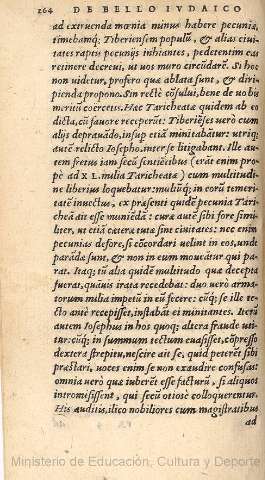 264 DE BELLO IVDAICO
ad extruenda mœnia minus habere pecuniæ,
timebamq́; Tiberiensem populũ, & alias ciui
tates raptis pecunijs inhiantes, pedetentim eas
retinere decreui, ut uos muro circũdarẽ. Si hoc
non uidetur, profero quæ ablata sunt, & diri-
pienda propono. Sin recte cõsului, bene de uobis
meritũ coërcetis. Hæc Taricheatæ quidem ab eo
dicta, cũ fauore receperũt: Tiberiẽses uerò cum
alijs deprauãdo, insup etiã minitabãtur: utriq;
autẽ relicto Iosepho, inter se litigabant. Ille au-
tem fretus iam secũ sentiẽtibus (erãt enim pro
pè ad XL. milia Taricheatæ) cum multitudi-
ne liberius loquebatur: multũq́; in eorũ temeritatẽ
inuectus, ex præsenti quidẽ pecunia Tari-
cheã ait esse muniẽdã: curæ autẽ sibi fore simi-
liter, ut etiã cæteræ tutæ sint ciuitates: nec enim
pecunias defore, si cõcordari uelint in eos, unde
parãdæ sunt, & non in eum moueãtur qui pa-
rat. Itaq; tũ alia quidẽ multitudo quæ decepta
fuerat, quãuis irata recedebat: duo uero arma-
torum milia impetũ in eũ fecere: cũq́; se ille te-
cto ante recepisset, instabãt ei minitantes. Iterũ
autem Iosephus in hos quoq; altera fraude uti-
tur: cũq́; in summum tectum euasisset, cõpresso
dextera strepitu, nescire ait se, quid peterẽt sibi
præstari, uoces enim se non exaudire confusas:
omnia uerò quæ iuberẽt esse facturũ, si aliquos
intromisissent, qui secũ otiose colloquerentur.
His auditis, ilico nobiliores cum magistratibus
ad
Ministerio de Educación, Cultura y Deporte